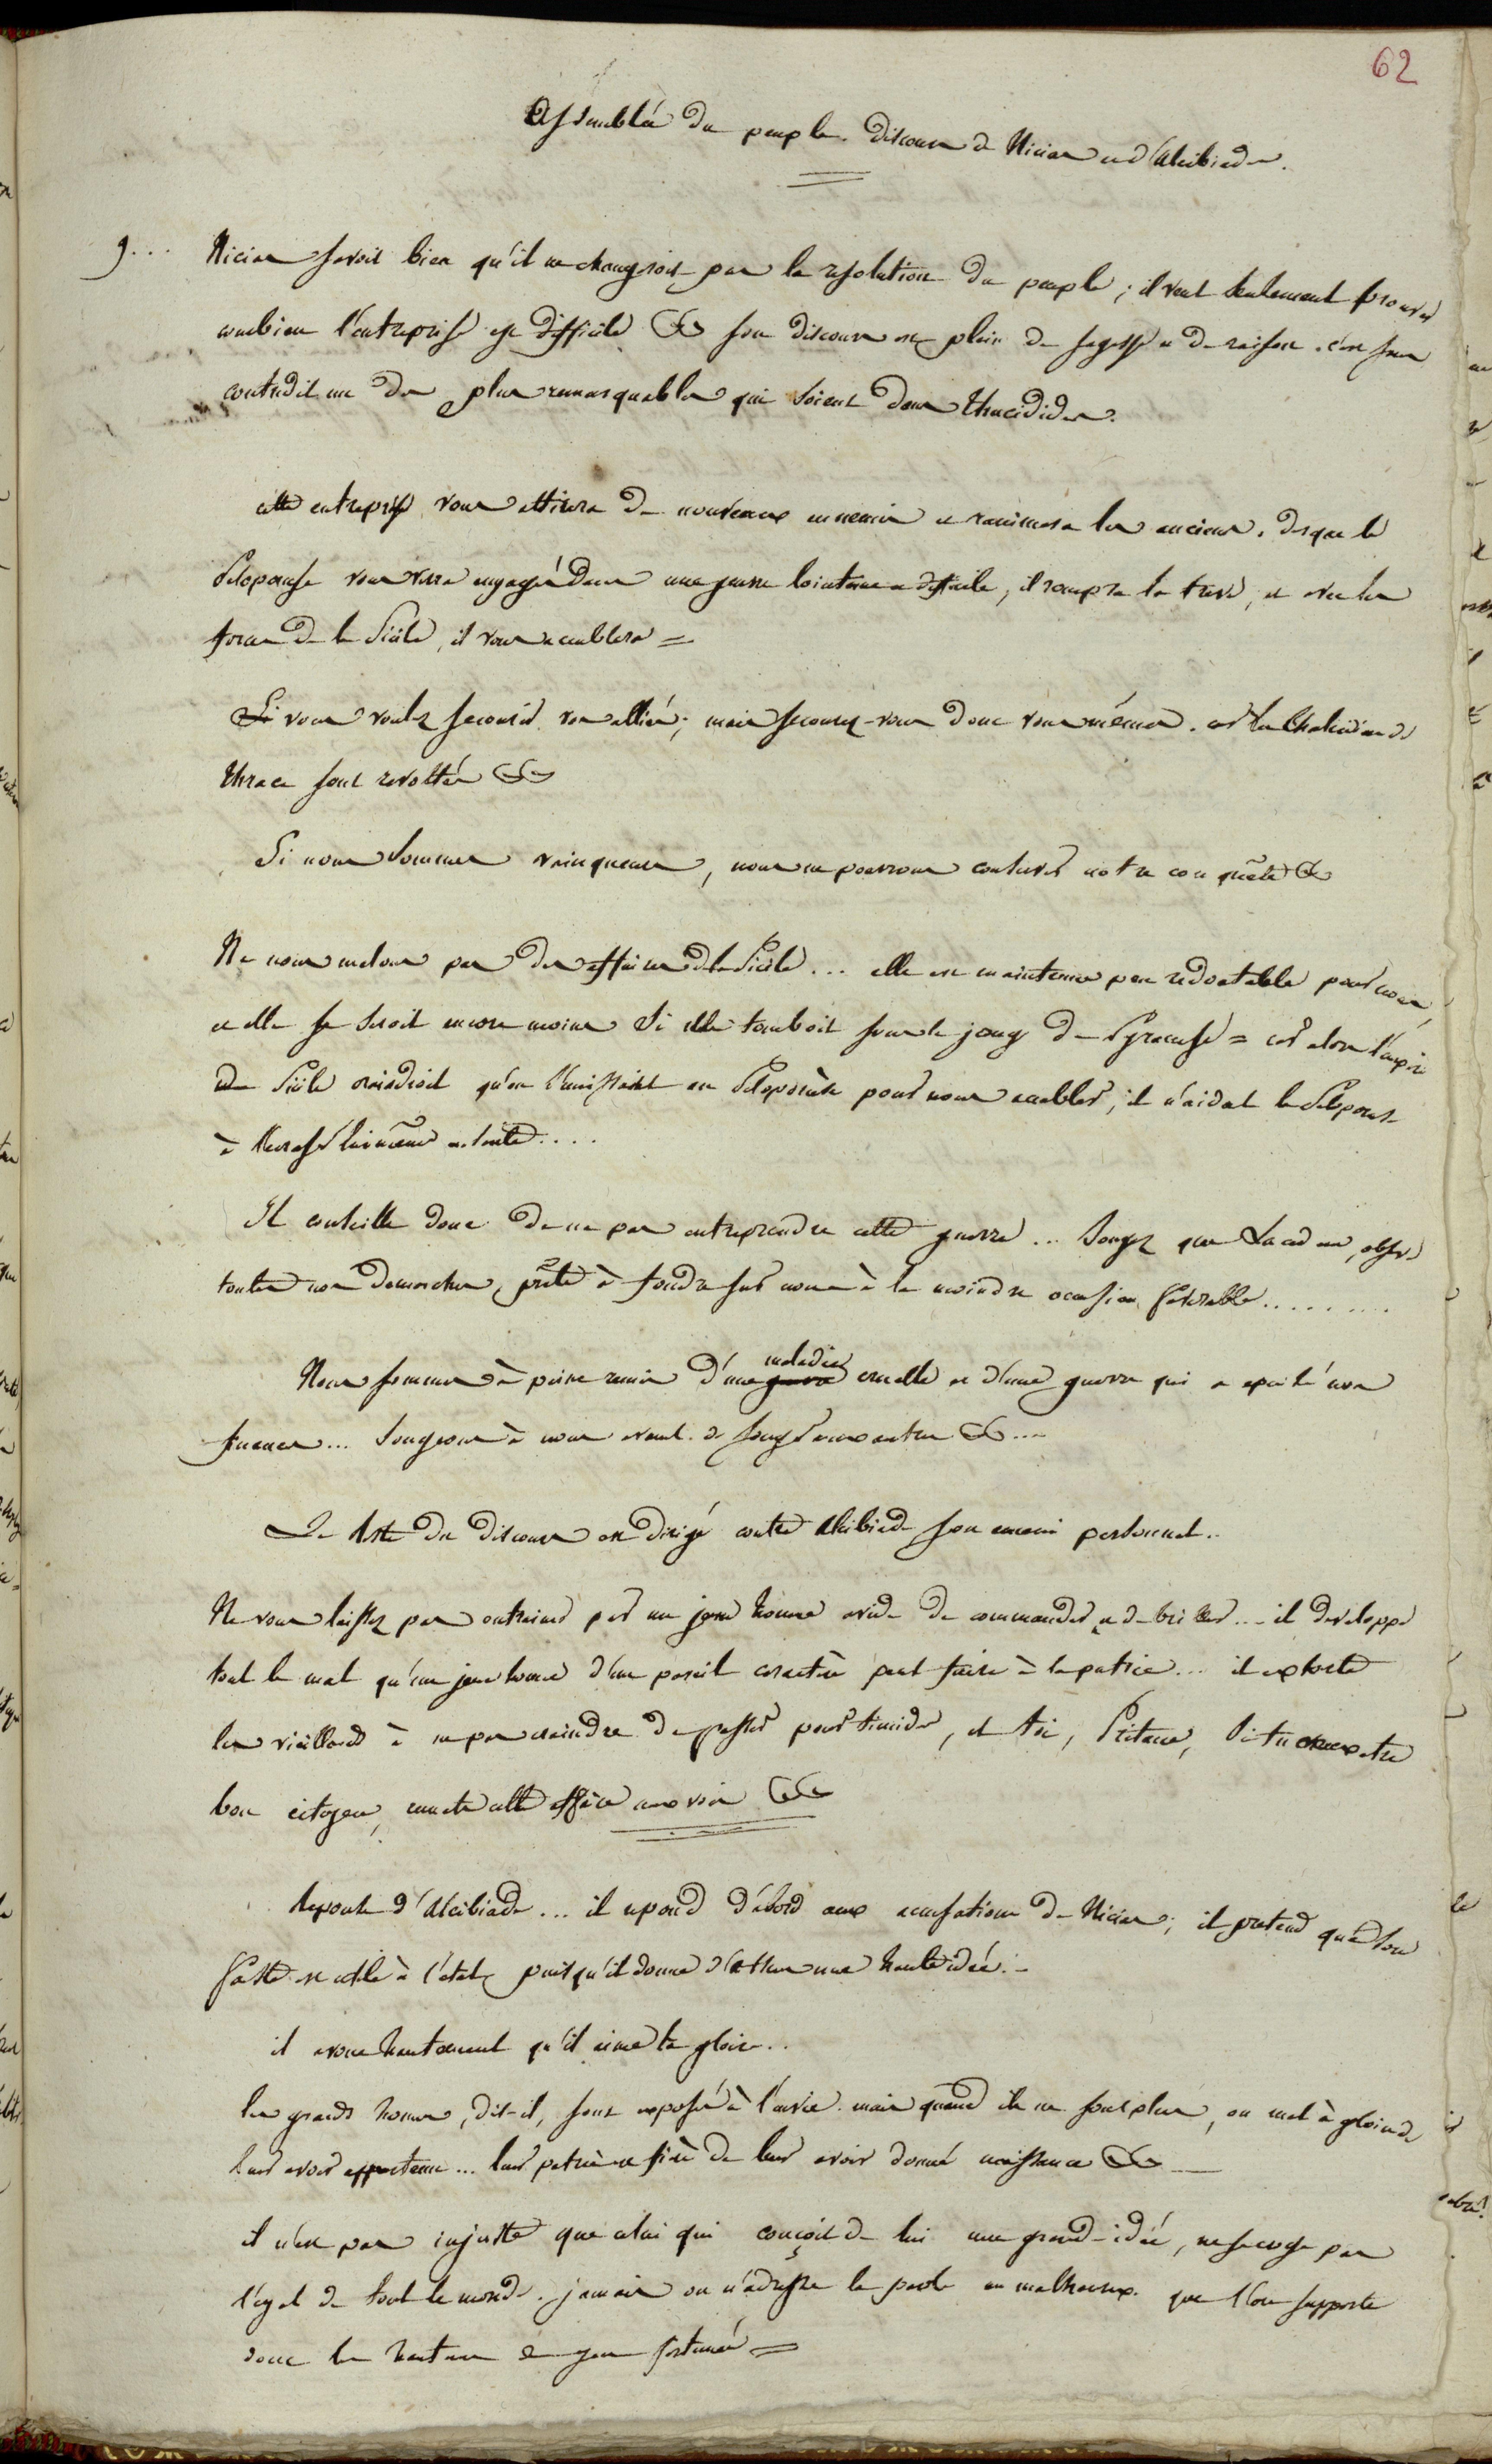 62
Assemblée du peuple. Discours de Nicias et d'Alcibiade.
9... Nicias savoit bien qu'il ne changeroit pas la resolution du peuple ; il veut seulement prouver
combien l'entreprise est difficile &c son discours est plein de sagesse et de raison. c'est sans
contredit un des plus remarquables qui soient dans Thucidides.
cette entreprise vous attirera de nouveaux ennemis et ranimera les anciens. des que le
Peloponese vous verra engagés dans une guerre lointaine et difficile, il rompra la treve, et avec les
forces de la Sicile, il vous accablera =
Si vous voulez secourir vos alliés ; mais secourez-vous donc vous mêmes. car les Chalcidiens de
Thrace sont revoltés &c
Si nous sommes vainqueurs, nous ne pourrons conserver notre conquête &
Ne nous melons pas des affaires de la Sicile... elle est maintenant peu redoutable pour nous,
et elle le seroit encore moins si elle tomboit sous le joug de Syracuse = car alors l'empire
de Sicile craindroit qu'en s'unissant au Peloponèse pour nous accabler, il n'aidat le Peloponese
à lui même ensuite....
Il conseille donc de ne pas entreprendre cette guerre... Songez que Lacedemone, observe
toutes nos demarches, prête à fondre sur nous à la moindre occasion favorable.........
Nous sommes à peine remis d'une guerre maladie cruelle et d'une guerre qui a epuisé nos
finances... Songeons à nous avant de songer aux autres &c...
Le reste du discours est dirigé contre Alcibiade son ennemi personnel..
Ne vous laissez pas entrainer par un jeune homme avide de commander et de briller... il developpe
tout le mal qu'un jeune homme d'un pareil caractère peut faire à la patrie... il exhorte
les vieillards à ne pas craindre de passer pour timides, et toi, Pritane, si tu veux etre
bon citoyen, remets cette affaire aux voix &c
Reponse d'Alcibiade... il repond d'abord aux accusations de Nicias ; il pretend que son
faste est utile à l'etat, puisqu'il donne d'Athenes une haute idée.-
il avoue hautement qu'il aime la gloire..
les grands hommes, dit-il, sont exposés à l'envie. mais quand ils ne sont plus, on met à gloire de
leur avoir appartenu... leur patrie est fière de leur avoir donné naissance &c
il n'est pas injuste que celui qui conçoit de lui une grande idée, ne se croye pas
l'egal de tout le monde. jamais on n'adresse la parole au malheureux. que l'on supporte
donc la hauteur des gens fortunés =